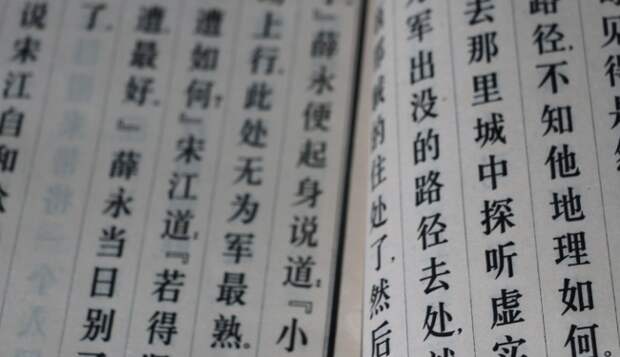 见得是
路径,不知他地理如何。
去那里城中探听虚实
军出没的路径去处,
的住处了,然后
』薛永便起身说道:『小
上行,此处无为军最熟。
遭如何?』宋江道:『若得
遭,最好。』薛永当日别了
了。
说宋江自和众